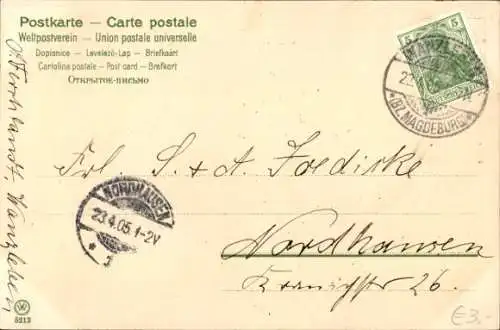 Postkarte – Carte postale
Weltpostverein – Union postale universelle
Dopisnice – Levelező-Lap – Brefkaart
Cartolina postale – Post card – Brefkort
Открытое-письмо
5
5
WANZLEBEN
*(BZ. MAGDEBURG)*
Frl. S. & A. Joedicke
NORDHAUSEN
23.4.05.1-2V
* 1
Nordhausen
Kranichstr 26.
Wanzleben
5213
€3,-